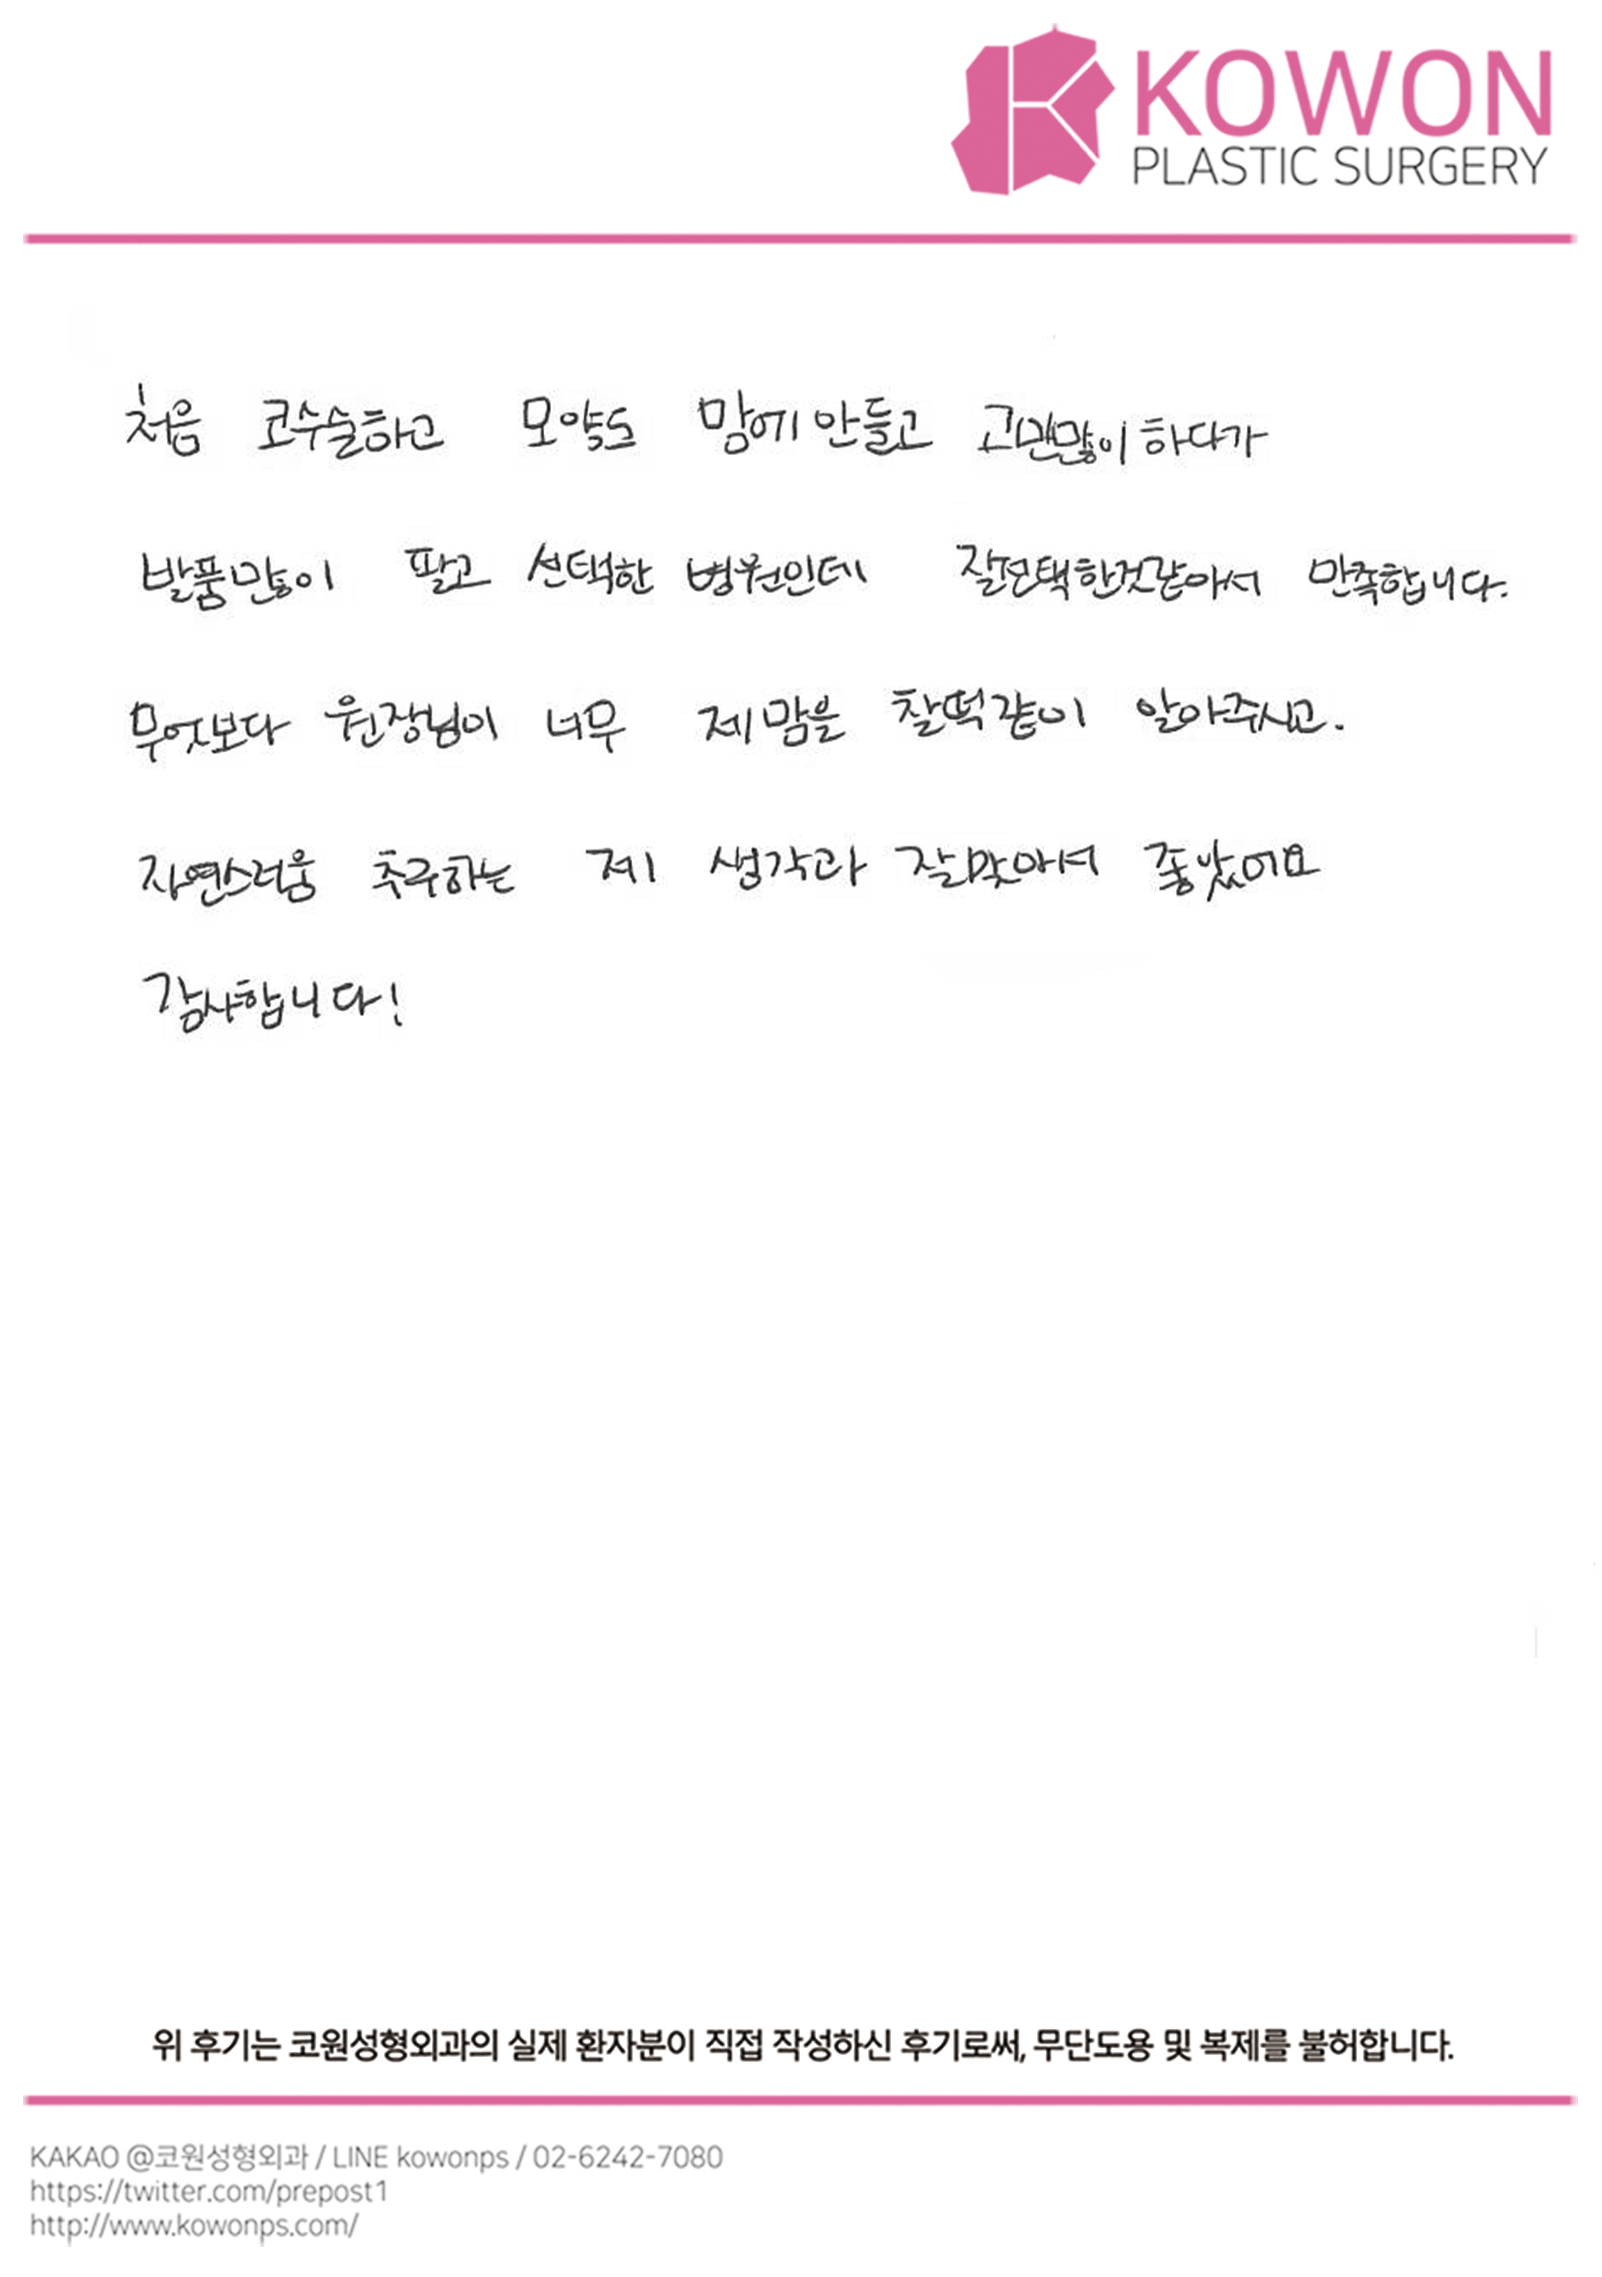 KOWON
PLASTIC SURGERY
처음 코수술하고 모양도 맘에 안들고 고민많이 하다가
발품많이 팔고 선택한 병원인데 잘선택한것같아서 만족합니다.
무엇보다 원장님이 너무 제맘을 찰떡같이 알아주시고.
자연스러움 추구하는 제 생각과 잘맞아서 좋았어요
감사합니다!
위 후기는 코원성형외과의 실제 환자분이 직접 작성하신 후기로써, 무단도용 및 복제를 불허합니다.
KAKAO @코원성형외과 / LINE kowonps / 02-6242-7080
https://twitter.com/prepost1
http://www.kowonps.com/